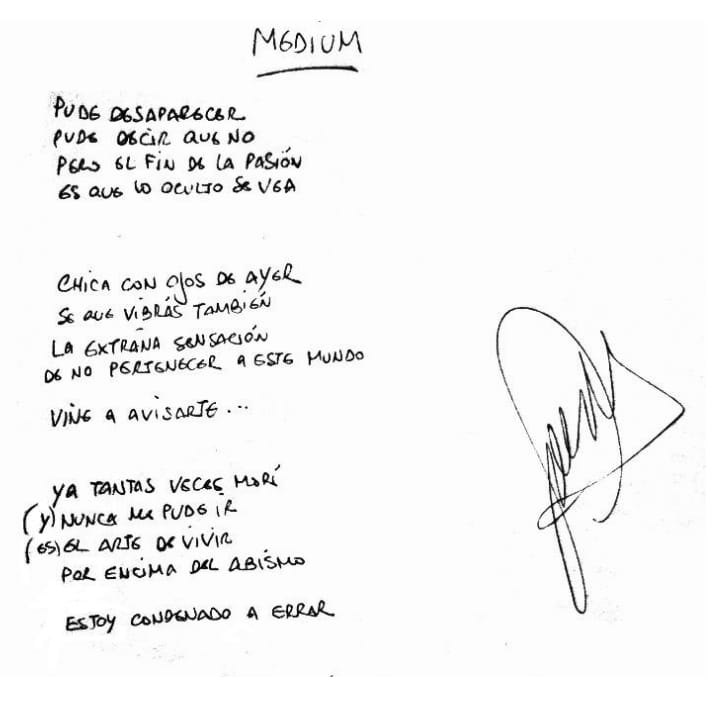 MEDIUM
PUDE DESAPARECER
PUDE DECIR QUE NO
PERO EL FIN DE LA PASIÓN
ES QUE LO OCULTO SE VEA
CHICA CON OJOS DE AYER
SE QUE VIBRÁS TAMBIÉN
LA EXTRAÑA SENSACIÓN
DE NO PERTENECER A ESTE MUNDO
VINE A AVISARTE...
YA TANTAS VECES MORÍ
(Y) NUNCA ME PUDE IR
(ES) EL ARTE DE VIVIR
POR ENCIMA DEL ABISMO
ESTOY CONDENADO A ERRAR